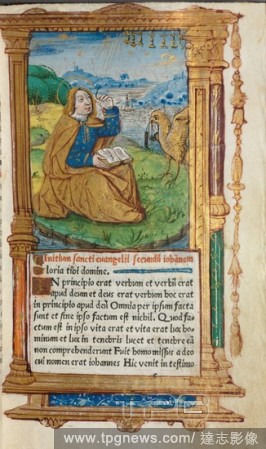 Initium sancti euangelii secundū iohānem
loria tibi domine.
IN principio erat verbum et verbū erat
apud deum et deus erat verbum hoc erat
in principio apud deū Omnia per ipsum facta
sunt et sine ipso factum est nichil. Quod fa-
ctum est in ipso vita erat et vita erat lux ho-
minum et lux in tenebris lucet et tenebre eā
non comprehenderunt Fuit homo missus a deo
cui nomen erat iohannes Hic venit in testimo
www.tpgnews.com / 達志影像